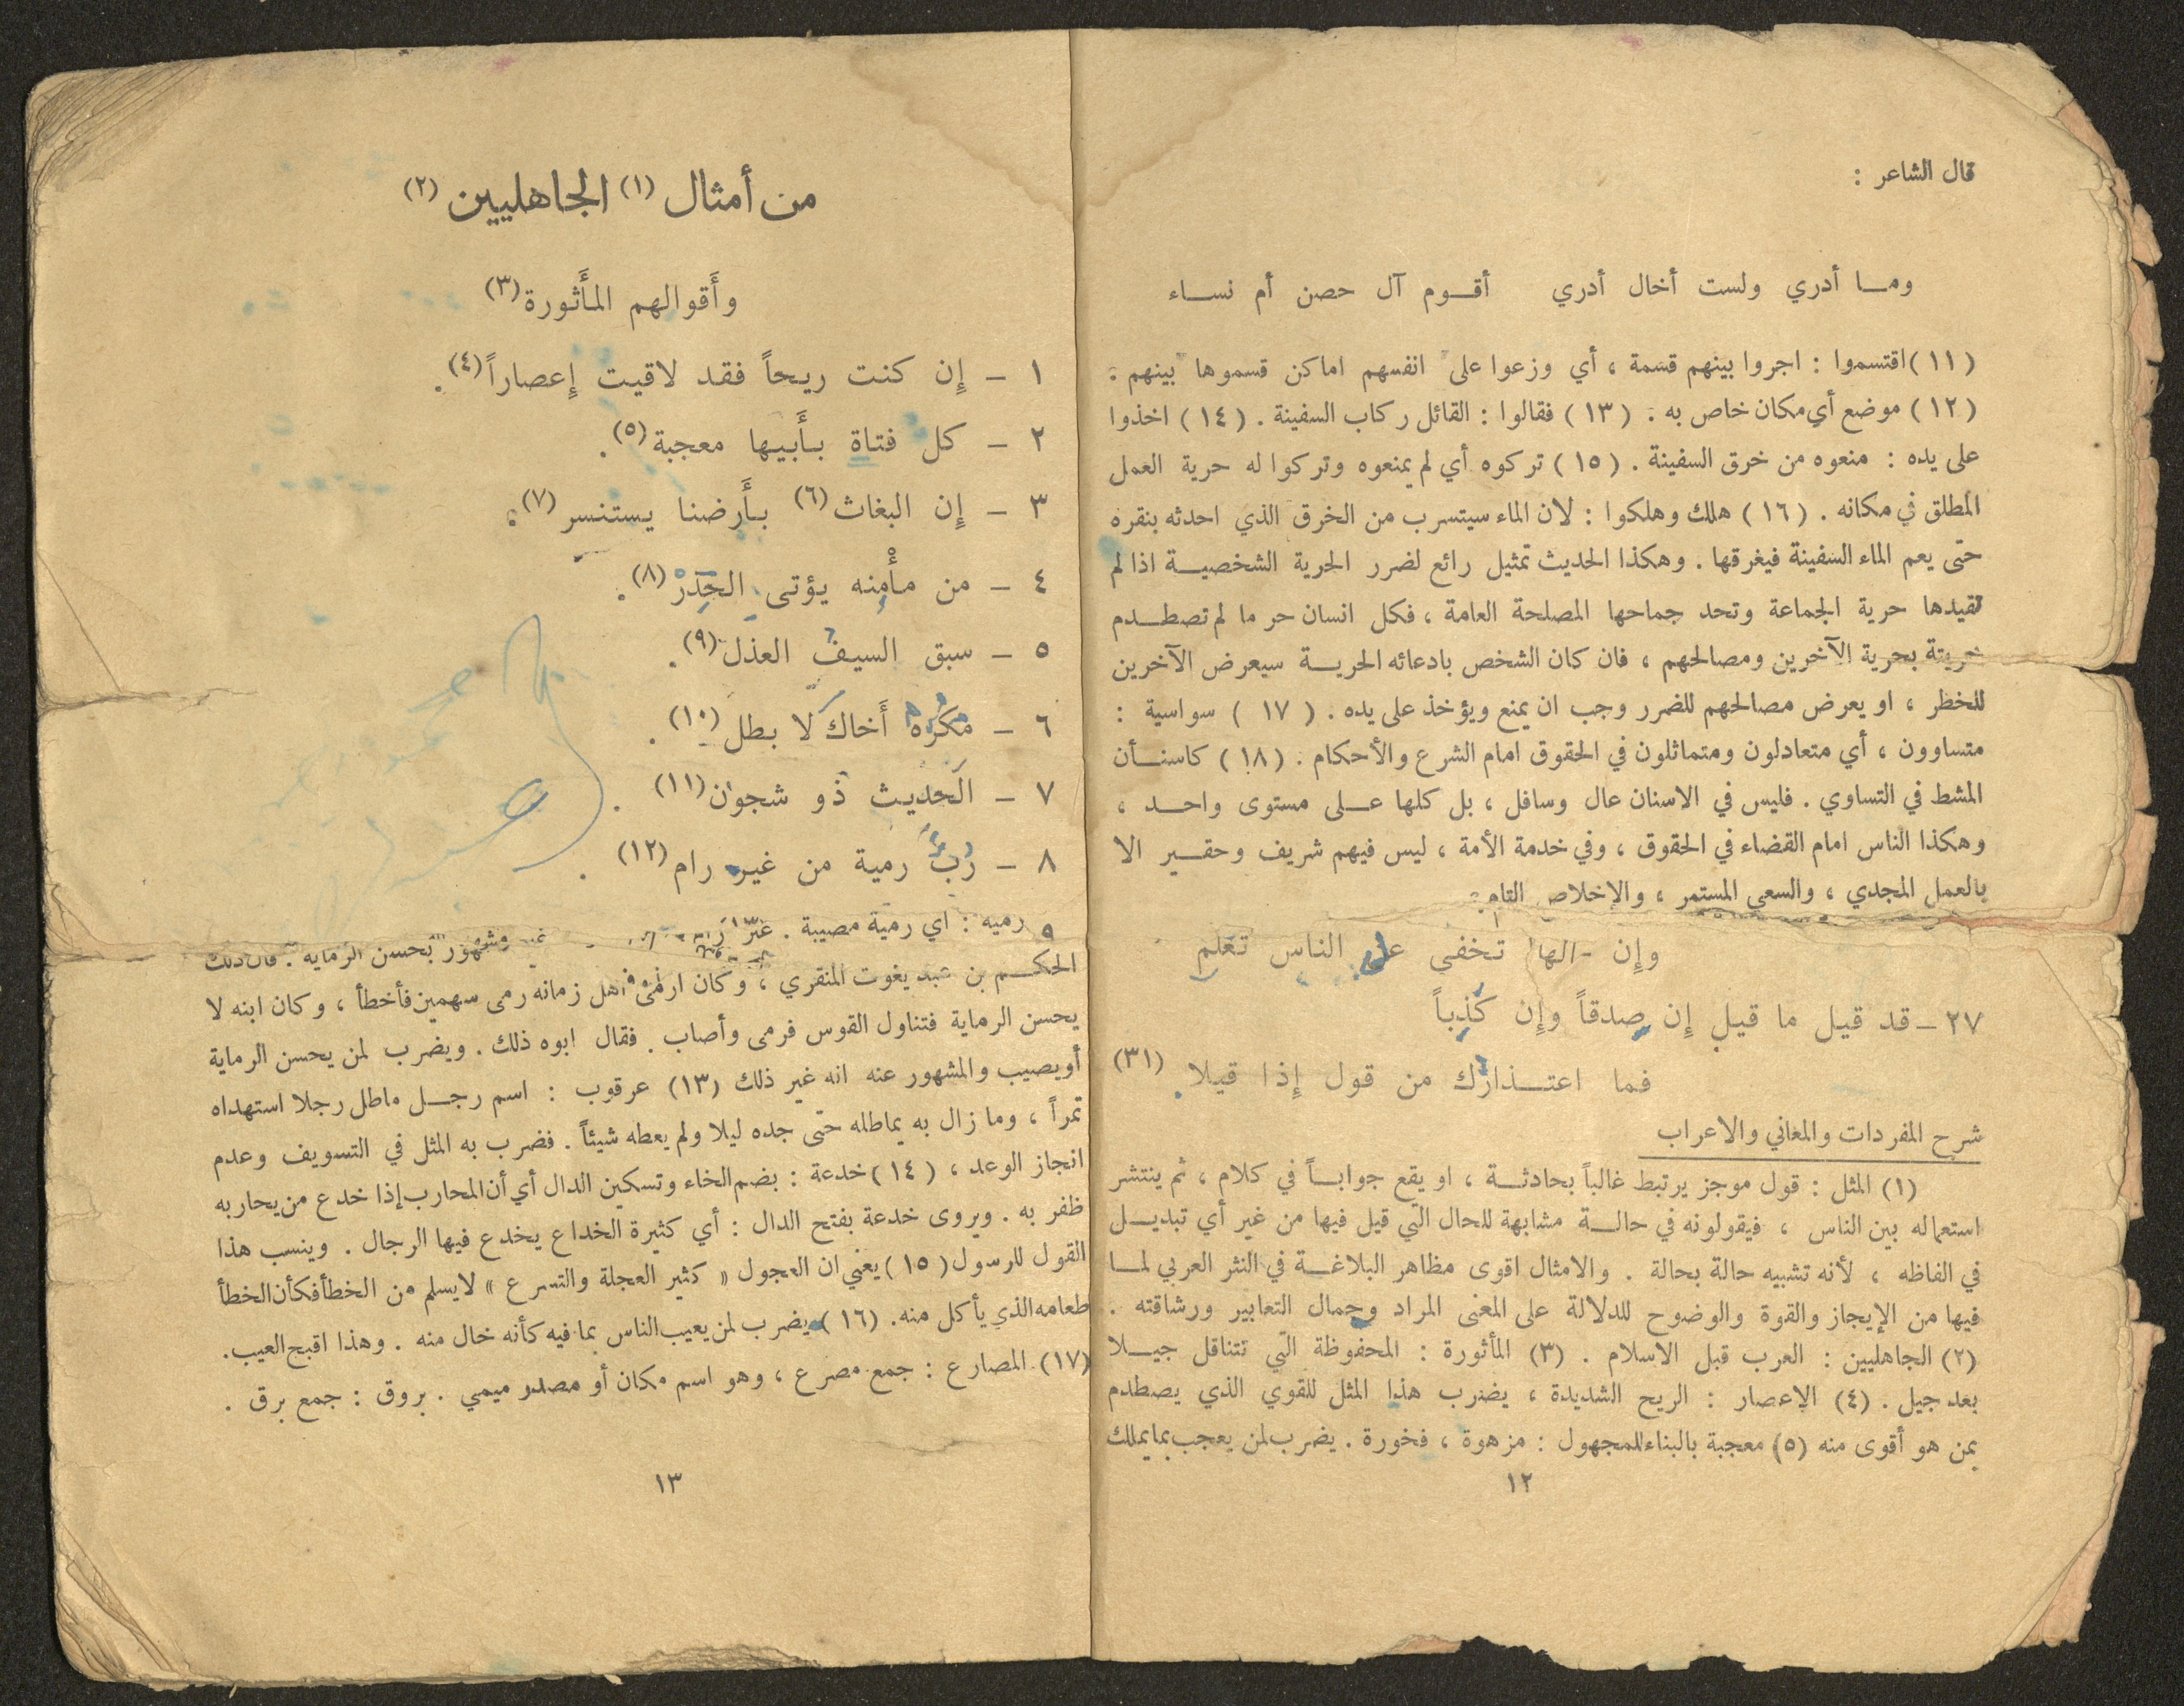 قال الشاعر :
ومـــا أدري ولست أخال أدري أقـــوم آل حصن أم نســـاء
(١١) اقتسموا : اجروا بينهم قسمة ، أي وزعوا على انفسهم اماكن قسموها بينهم .
(١٢) موضع أي مكان خاص به . (١٣) فقالوا : القائل ركاب السفينة . (١٤) اخذوا
على يده : منعوه من خرق السفينة . (١٥) تركوه أي لم يمنعوه وتركوا له حرية العمل
المطلق في مكانه . (١٦) هلك وهلكوا : لان الماء سيتسرب من الخرق الذي احدثه بنقره
حتى يعم الماء السفينة فيغرقها . وهكذا الحديث تمثيل رائع لضرر الحرية الشخصيـــة اذا لم
تقيدها حرية الجماعة وتحد جماحها المصلحة العامة ، فكل انسان حر ما لم تصطـــدم
حريتة بحرية الآخرين ومصالحهم ، فان كان الشخص بادعائه الحريـــة سيعرض الآخرين
للخطر ، او يعرض مصالحهم للضرر وجب ان يمنع ويؤخذ على يده . (١٧) سواسية :
متساوون ، أي متعادلون ومتماثلون في الحقوق امام الشرع والأحكام . (١٨) كاسنـــأن
المشط في التساوي . فليس في الاسنان عال وسافل ، بل كلها عـــلى مستوى واحـــد ،
وهكذا الناس امام القضاء في الحقوق ، وفي خدمة الأمة ، ليس فيهم شريف وحقـــير الا
بالعمل المجدي ، والسعي المستمر ، والإخلاص التام .
وإن تخفى على الناس تعلم
٢٧ – قد قيل ما قيل إن صدقاً وإن كذباً
فما اعتـــذارك من قول إذا قيلا (٣١)
شرح المفردات والمعاني والاعراب
(١) المثل : قول موجز يرتبط غالباً بحادثـــة ، او يقع جوابـــاً في كلام ، ثم ينتشر
استعماله بين الناس ، فيقولونه في حالـــة مشابهة للحال التي قيل فيها من غير أي تبديـــل
في الفاظه ، لأنه تشبيه حالة بحالة . والامثال اقوى مظاهر البلاغـــة في النثر العربي لمـــا
فيها من الإيجاز والقوة والوضوح للدلالة على المعنى المراد وجمال التعابير ورشاقته .
(٢) الجاهليين : العرب قبل الاسلام . (٣) المأثورة : المحفوظة التي تتناقل جيـــلا
بعد جيل . (٤) الإعصار : الريح الشديدة ، يضرب هذا المثل للقوي الذي يصطدم
بمن هو أقوى منه (٥) معجبة بالبناء للمجهول : مزهوة ، فخورة . يضرب لمن يعجب بما يملك
١٢
من أمثال (١) الجاهليين (٢)
وأَقوالهم المأَثورة (٣)
١ – إِن كنت ريحاً فقد لاقيت إِعصاراً (٤) .
٢ – كل فتاة بأَبيها معجبة (٥) .
٣ – إِن البغاث (٦) بأَرضنا يستنسر (٧) .
٤ – من مأْمنه يؤتى الحذر (٨) .
٥ – سبق السيف العذل (٩) .
٦ – مكره أَخاك لا بطل (١٠) .
٧ – الحديث ذو شجون (١١) .
٨ – رب رمية من غير رام (١٢) .
رميه : أي رمية مصيبة . مشهور بحسن الرماية . قال ذلك
الحكـــم بن عبد يغوت المنقري ، وكان ارمى اهل زمانه رمى سهمين فأخطأ ، وكان ابنه لا
يحسن الرماية فتناول القوس فرمى وأصاب . فقال ابوه ذلك . ويضرب لمن يحسن الرماية
أو يصيب والمشهور عنه انه غير ذلك (١٣) عرقوب : اسم رجـــل ماطل رجلا استهداه
تمراً ، وما زال به يماطله حتى جده ليلا ولم يعطه شيئاً . فضرب به المثل في التسويف وعدم
انجاز الوعد ، (١٤) خدعة : بضم الخاء وتسكين الدال أي أن المحارب إذا خدع من يحاربه
ظفر به . ويروى خدعة بفتح الدال : أي كثيرة الخداع يخدع فيها الرجال . وينسب هذا
القول للرسول (١٥) يعني ان العجول « كثير العجلة والتسرع » لا يسلم من الخطأ فكأن الخطأ
طعامه الذي يأكل منه . (١٦) يضرب لمن يعيب الناس بما فيه كأنه خال منه . وهذا اقبح العيب .
(١٧) المصارع : جمع مصرع ، وهو اسم مكان أو مصدر ميمي . بروق : جمع برق .
١٣